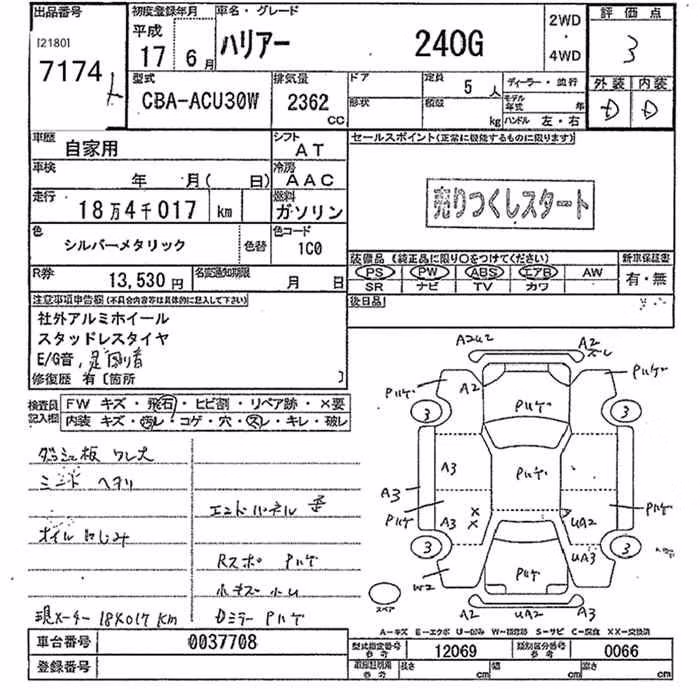 出品番号 初度登録年月 車名・グレード 評価点
I21801 平成 2WD
7174 17年 6月 ハリアー 240G 4WD 3
型式 排気量 ドア 定員 5人 ディーラー・並行 外装 内装
CBA-ACU30W 2362 CC 形状 積載 kg モデル年式 年 ハンドル 左・右 D D
車歴 自家用 シフト AT セールスポイント(正常に機能するものに限ります)
車検 年 月( 日) 冷房 AAC
走行 18万4千017 km 燃料 ガソリン 売りつくしスタート
色 シルバーメタリック 色替 色コード 1C0
装備品 (純正品に限り○をつけてください) 新車保証書
R券 13,530円 名変通知期限 月 日 PS PW ABS エアB AW 有・無
SR ナビ TV カワ
注意事項申告欄(不具合内容等は具体的に記入して下さい) 後日品
社外アルミホイール
スタッドレスタイヤ
E/G音,足回り音
修復歴 有〔箇所 〕
検査員記入欄 FW キズ・飛石・ヒビ割・リペア跡・×要
内装 キズ・汚レ・コゲ・穴・スレ・キレ・破レ
ダッシュ板 ワレ大
エンドパネル 歪
オイルにじみ
Rスポ Pハゲ
小キズ 小凹
現メーター 184017km Dミラー Pハゲ
A2U2 A2 スレ
Pハゲ A2 Pハゲ Pハゲ
3 3
A3 Pハゲ
A3 Pハゲ A3 × × UA2 Pハゲ
3 UA3 3
W2 Pハゲ
スペア A2 UA2 A3
A-キズ E-エクボ U-凹み W-補修跡 S-サビ C-腐食 XX-交換済
車台番号 0037708 型式指定番号 参考 12069 類別区分番号 参考 0066
登録番号 長さ cm 幅 cm 高さ cm